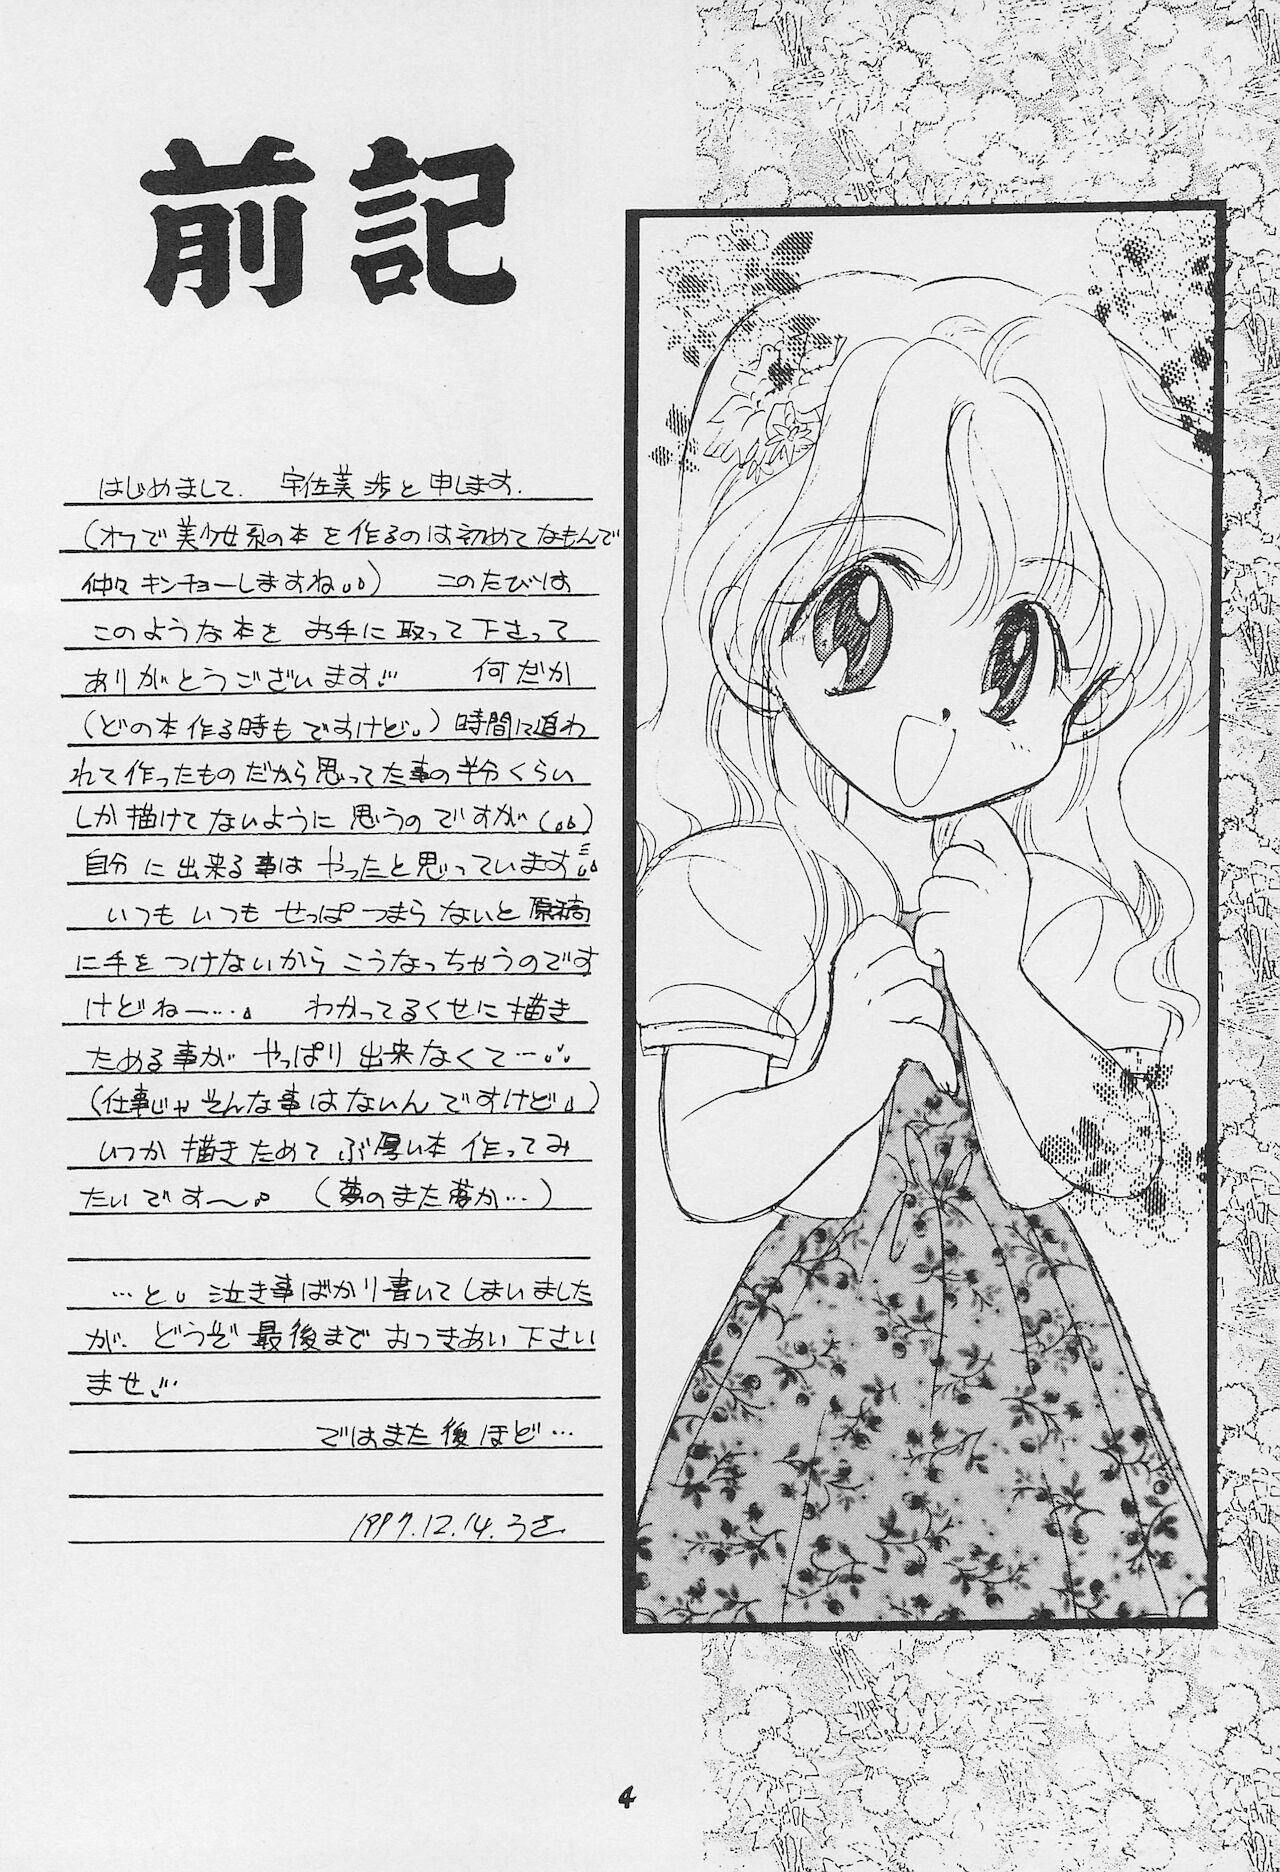 前記
はじめまして. 宇佐美 渉と申します.
(オフで美少女系の本を作るのは初めてなもんで
仲々キンチョーしますね。。) このたびは
このような本を お手に取って下さって
ありがとうございます!! 何だか
(どの本作る時もですけど。)時間に追わ
れて作ったものだから思ってた事の半分くらい
しか描けてないように思うのですが(。。)
自分に出来る事は やったと思っています。
いつもいつも せっぱつまらないと原稿
に手をつけないから こうなっちゃうのです
けどねー…。 わかってるくせに描き
ためる事が やっぱり出来なくて…
(仕事じゃそんな事はないんですけど。)
いつか描きためて ぶ厚い本 作ってみ
たいです〜♪ (夢のまた夢か…)
…と。泣き事ばかり書いてしまいました
が. どうぞ最後まで おつきあい下さい
ませ!!
ではまた後ほど…
1997.12.14.うさ
4